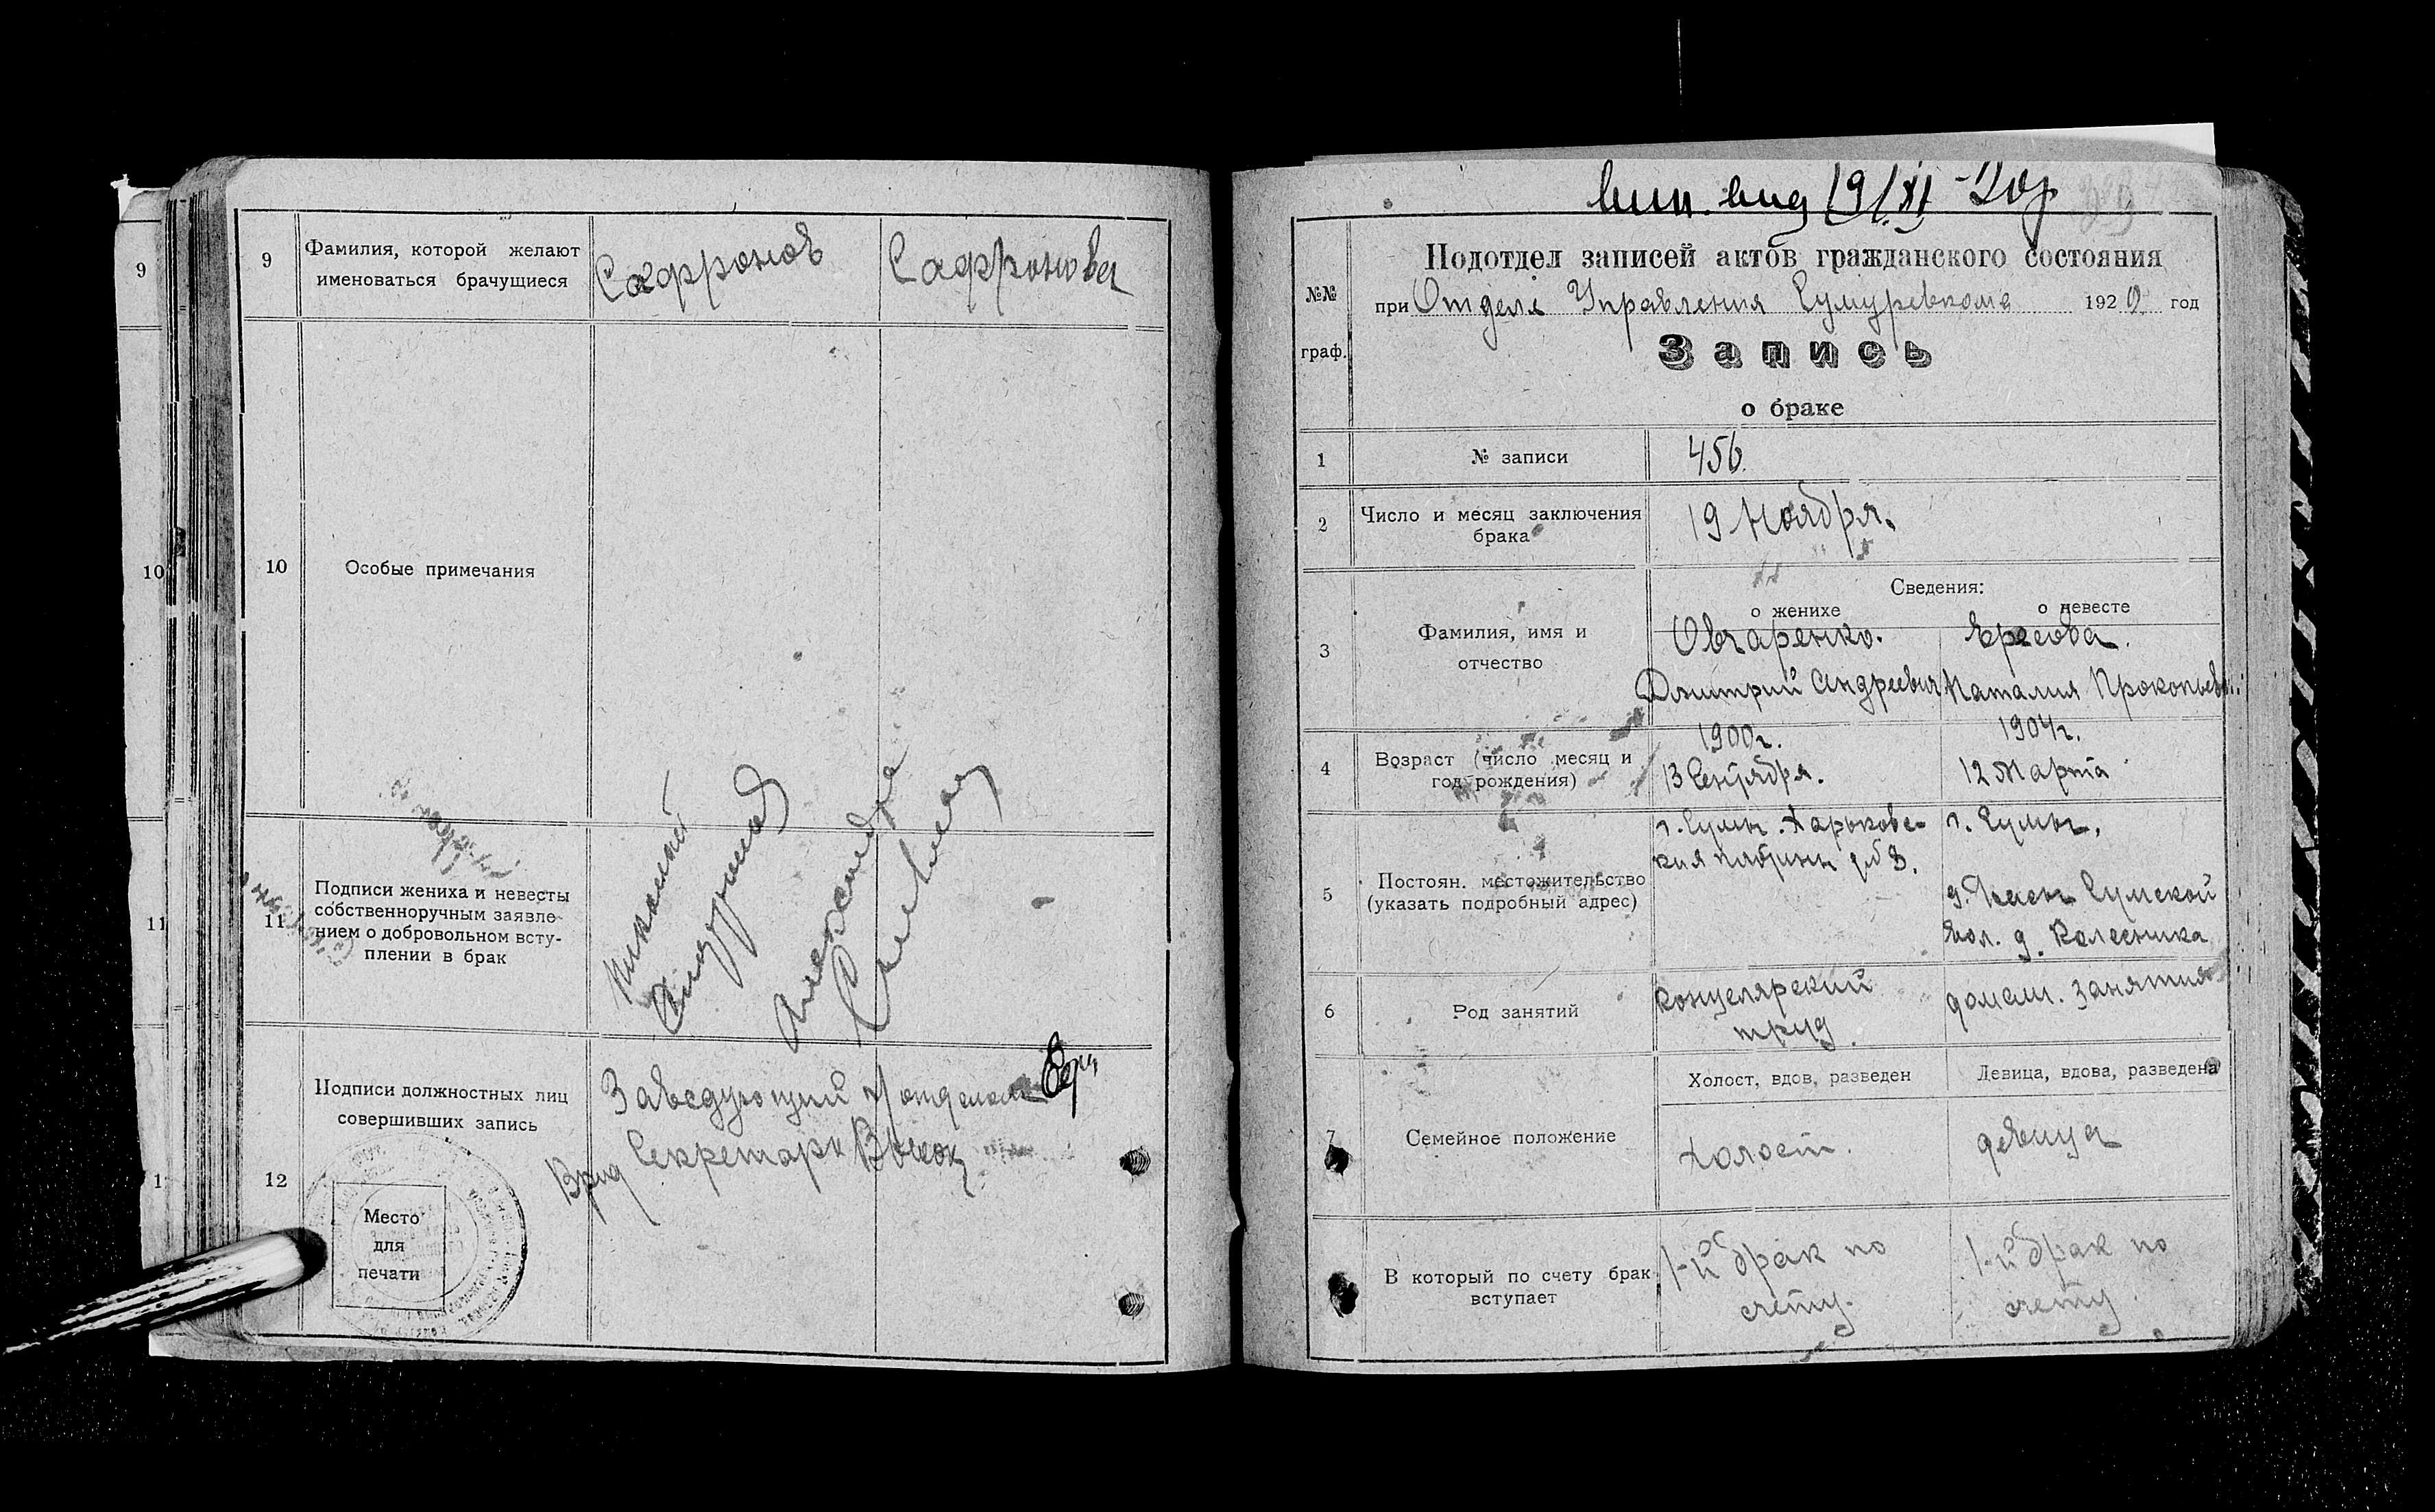 9
10
11
9
Фамилия, которой желают
именоваться брачущиеся
Саффронов
Саффронова
10
Особые примечания
11
Подписи жениха и невесты
собственноручным заявле-
нием о добровольном всту-
плении в брак
Николай
Александра
12
Подписи должностных лиц
совершивших запись
Место
для
печати
Заведующий
Врид Секретарь
вып. вид 19/XI-20г
№№
граф.
Подотдел записей актов гражданского состояния
при Отделе Управления Сумуревкома 1920 год
Запись
о браке
1
№ записи
456.
2
Число и месяц заключения
брака
19 Ноября.
3
Фамилия, имя и
отчество
Сведения:
о женихе
о невесте
Овчаренко.
Дмитрий Андреевич
Наталия Прокопьев
4
Возраст (число месяц и
год рождения)
1900г.
13 Сентября.
1904г.
12 Марта
5
Постоян. местожительство
(указать подробный адрес)
г. Сумы. Харьковс-
кая
г. Сумы,
Сумской
вол. д. Колесника
6
Род занятий
Концелярский
труд
домаш. занятия
7
Семейное положение
Холост, вдов, разведен
Девица, вдова, разведена
холост.
девица
В который по счету брак
вступает
1-й брак по
счету.
1-й брак по
счету